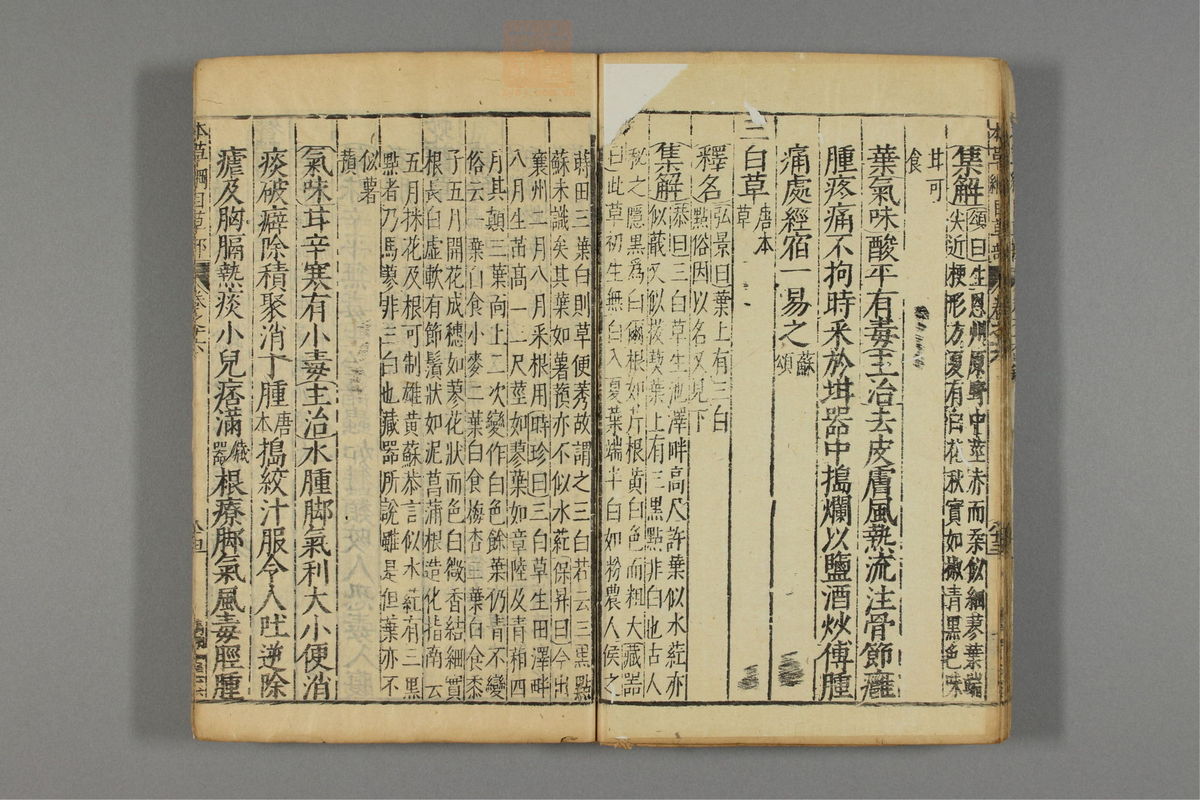 集解頌曰生恩州原野中莖赤而
尖近梗形方夏有花秋實如椒青黑色味
甘可
食
葉氣味酸平有毒主治去皮膚風熱流注骨節癰
腫疼痛不拘時釆於坩器中搗爛以鹽酒炒傅腫
痛處經宿一易之蘇頌
三白草唐本草
釋名弘景曰葉上有三白
點俗因以名又見下
集解恭曰三白草生池澤畔高尺許葉似水葒亦
似蕺又似菝葜葉上有三黑點非白也古人
秘之隱黑爲白爾根如芹根黃白色而粗大藏器
曰此草初生無白入夏葉端半白如粉農人侯之
蒔田三葉白則草便秀故謂之三白若云三黑點
蘇未識矣其葉如薯蕷亦不似水葒保昇曰今出
襄州二月八月釆根用時珍曰三白草生田澤畔
八月生苗高二三尺莖如蓼葉如章陸及青葙四
月其顛三葉向上三次變作白色餘葉仍青不變
俗云一葉白食小麥二葉白食梅杏三葉白食黍
子五月開花成穗如蓼花狀而色白微香結細實
根長白虛軟有節鬚狀如泥菖蒲根造化指南云
五月採花及根可制雄黃蘇恭言似水葒有三黑
點者乃馬蓼非三白也藏器所說雖是但葉亦不
似薯
蕷
氣味甘辛寒有小毒主治水腫脚氣利大小便消
痰破癖除積聚消丁腫唐本搗絞汁服令人吐逆除
瘧及胸膈熱痰小兒痞滿藏器根療脚氣風毒脛腫
本草綱目草部